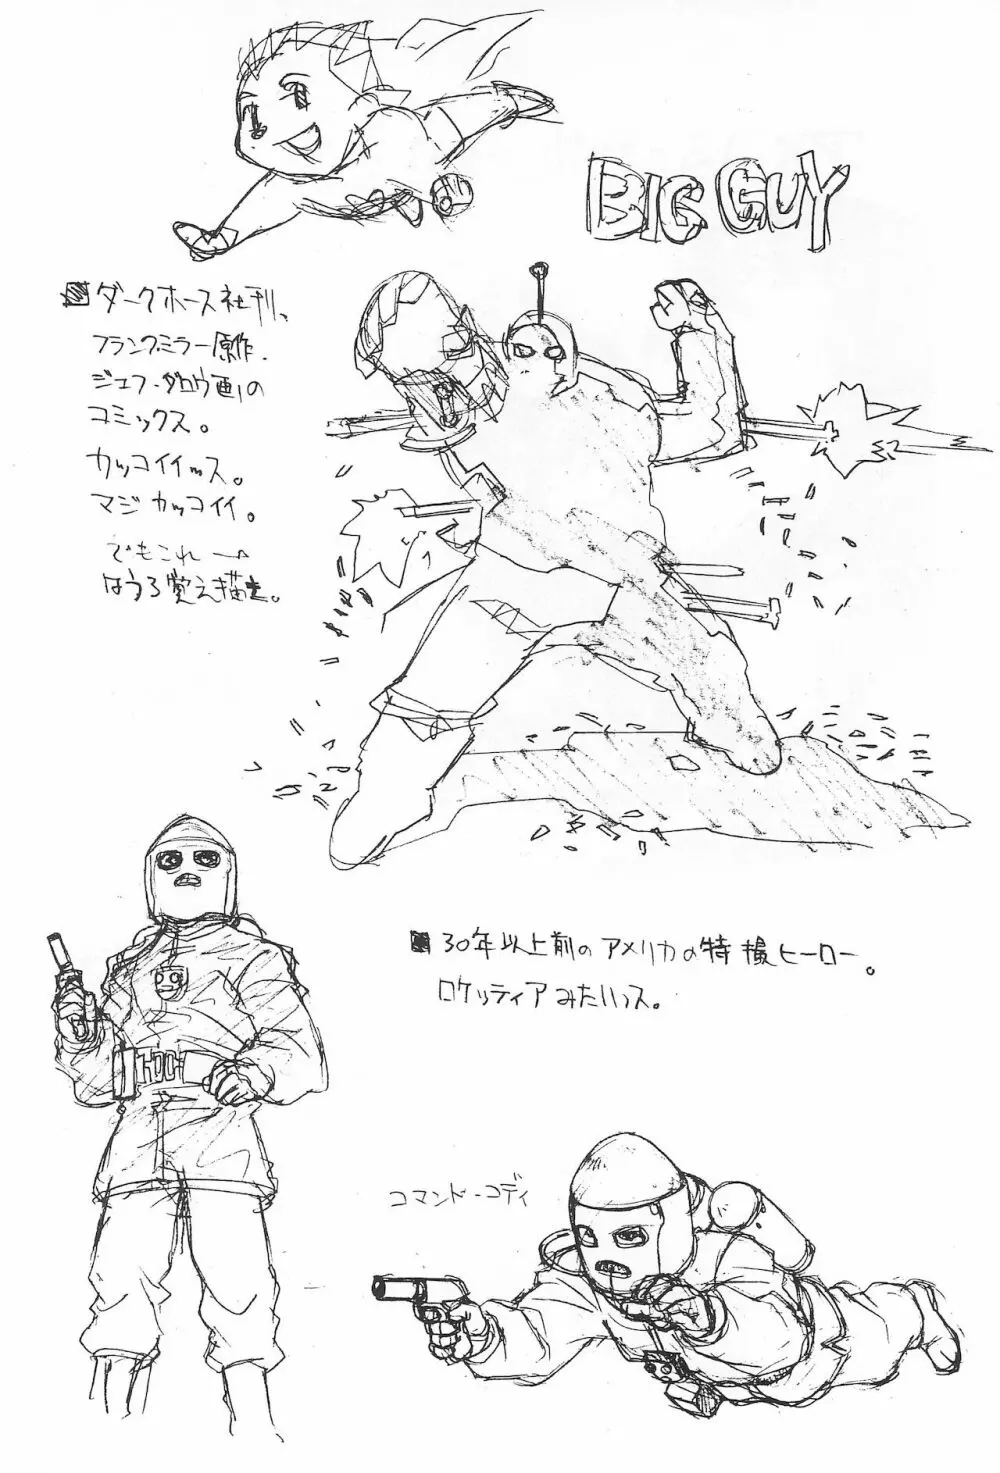 BIG GUY
■ダークホース社刊、
フランク・ミラー原作.
ジェフ・ダロウ画の
コミックス。
カッコイイッス。
マジカッコイイ。
でもこれ→
はうろ覚え描き。
■30年以上前のアメリカの特撮ヒーロー。
ロケッティアみたいっス。
コマンド・コディ